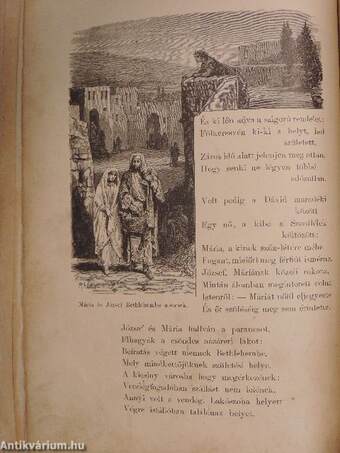 És ki lőn adva a szigorú rendelet:
Fölkeresvén ki-ki a helyt, hol
született,
Záros idő alatt jelenjen meg ottan,
Hogy senki ne légyen többé
adózatlan.
Volt pedig a Dávid maradéki
között
Egy nő, a kibe a Szentlélek
költözött:
Mária, a kinek szűz-létére méhe
Fogant, mielőtt meg férfiút ismérne.
József, Máriának közeli rokona,
Mintán álomban megintetett volna
Istentől: — Máriát nőül eljegyezte
És őt szüléséig meg sem érintette.
Mária és József Bethlehembe mennek.
József és Mária hallván a parancsot,
Elhagyák a csöndes názáreti lakot:
Beiratás végett mennek Bethlehembe,
Mely mindkettőjüknek születési helye.
A kicsiny városba hogy megérkezének:
Vendégfogadóban szállást nem lelének,
Annyi volt a vendég. Lakószoba helyett
Végre istállóban találának helyet.
Antikvárium.hu
antikvarium.hu